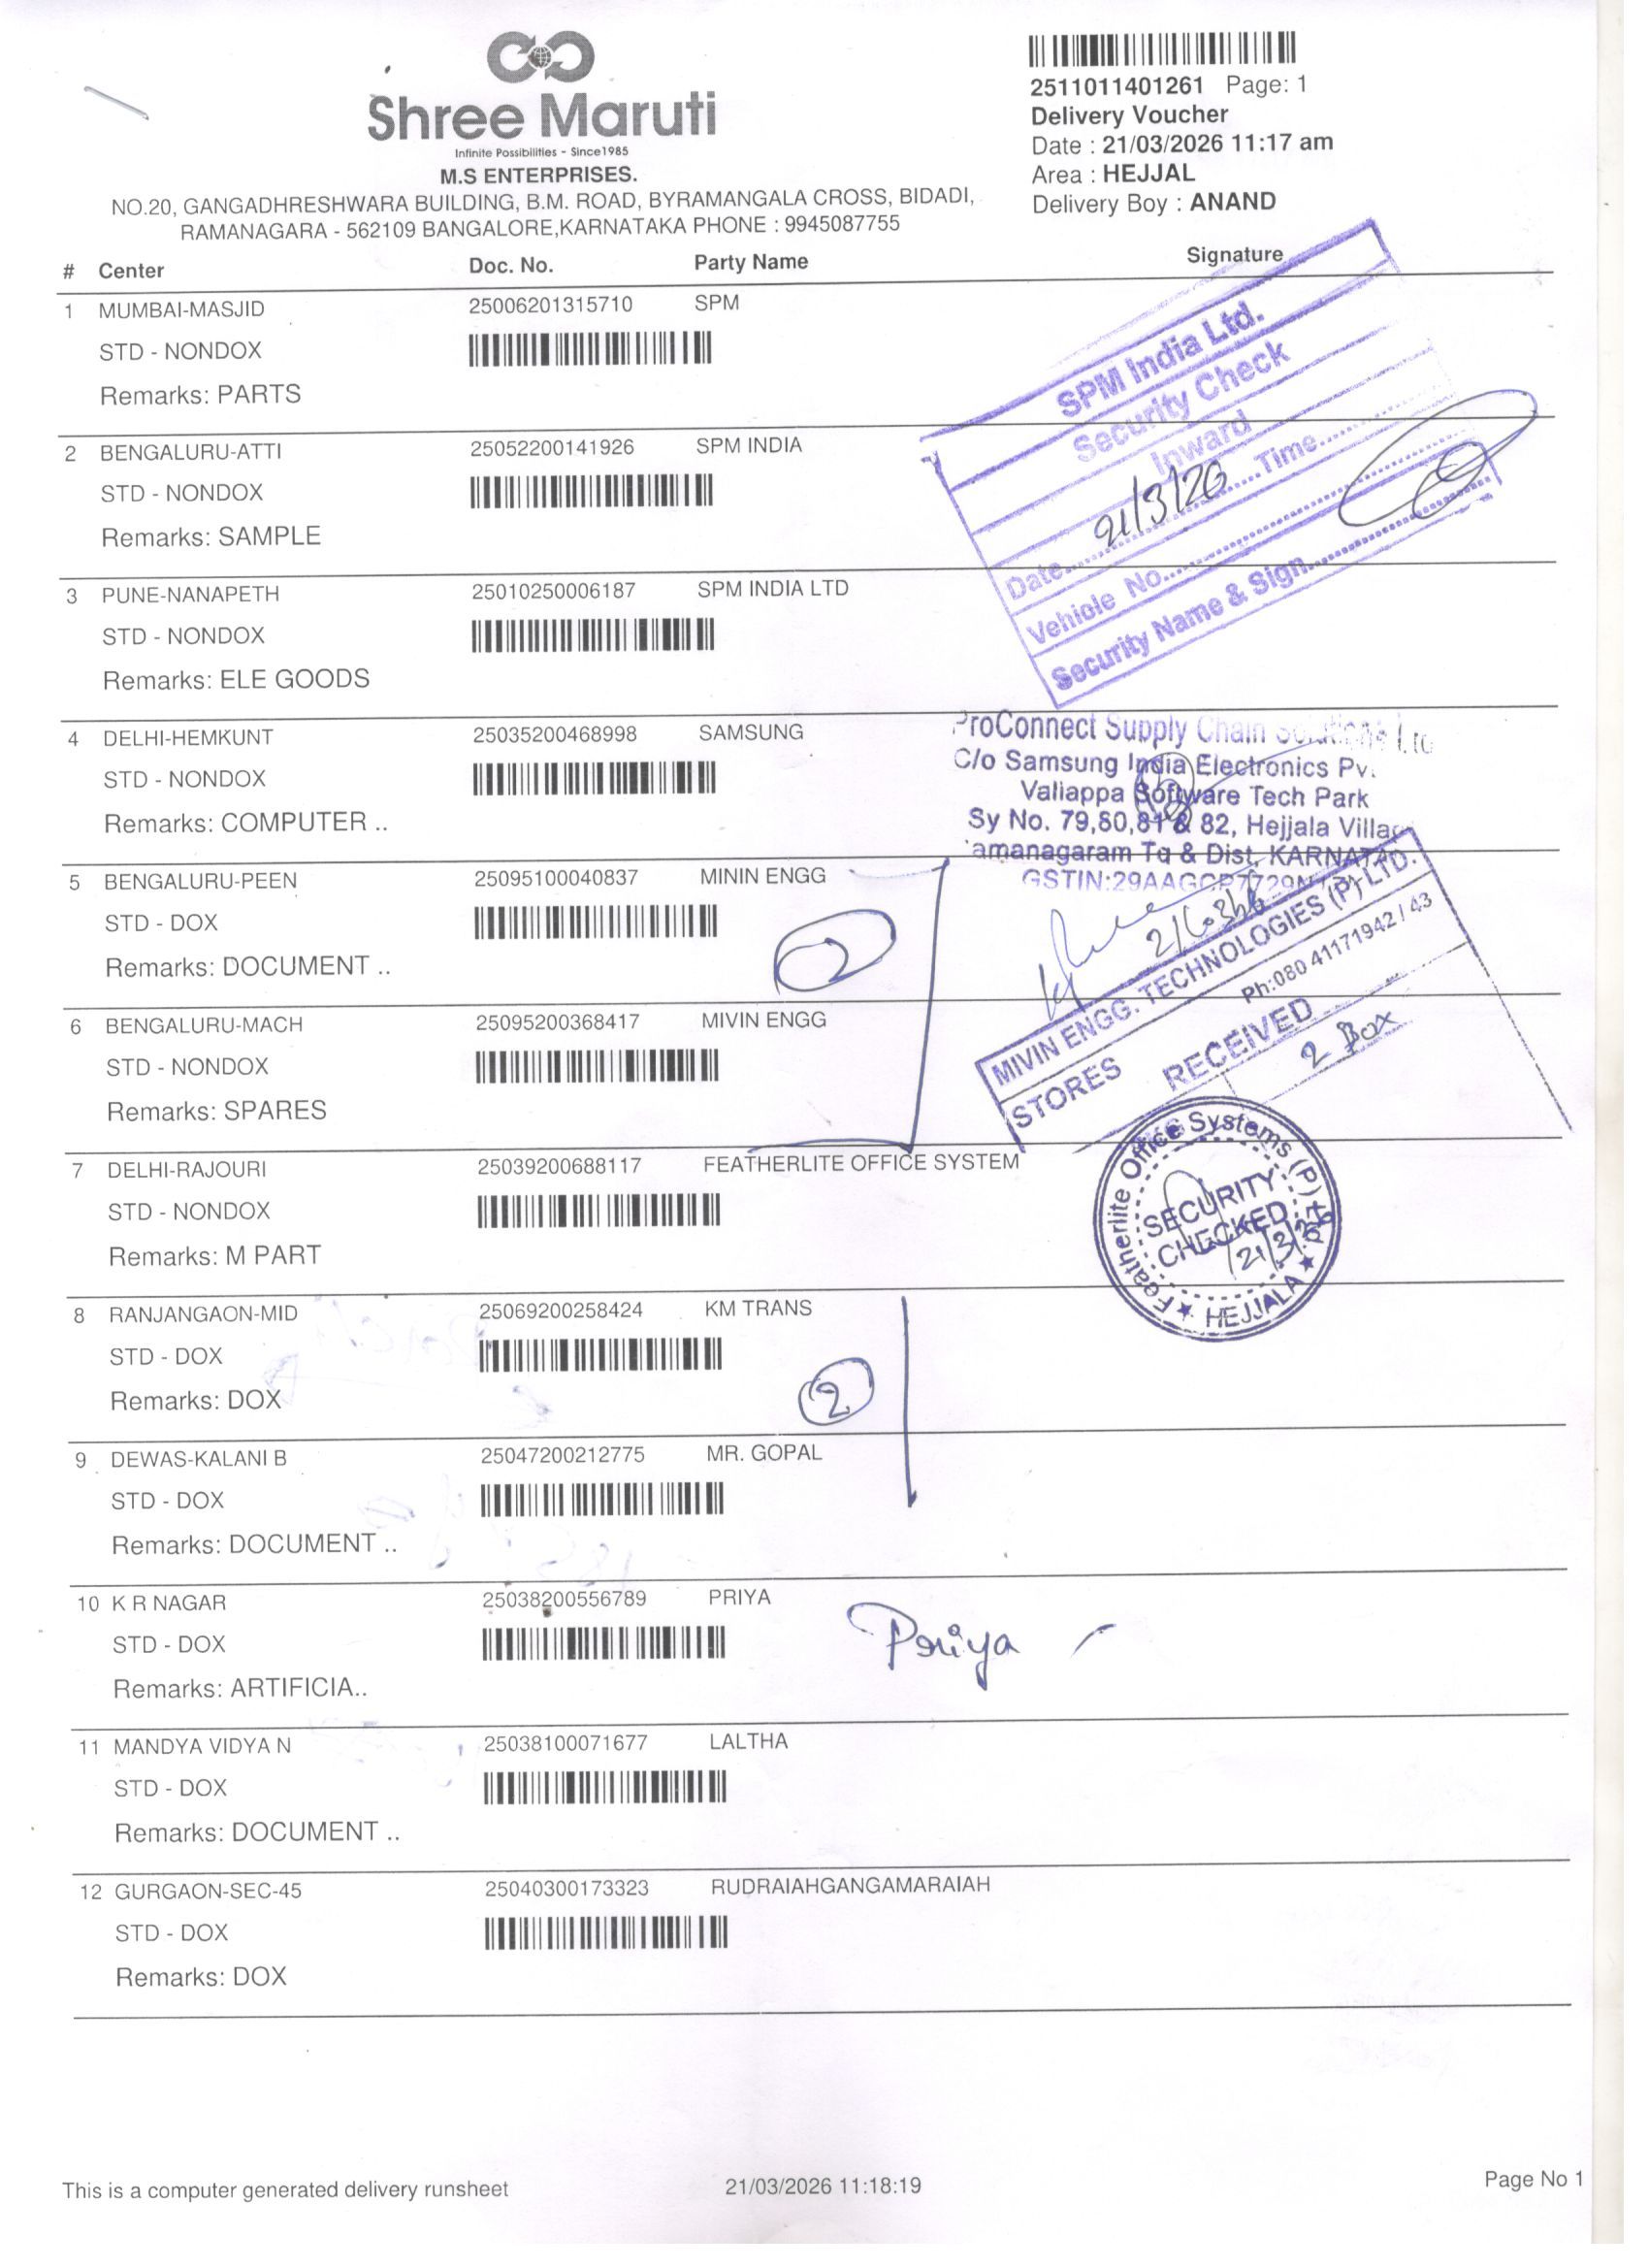 Shree Maruti
Infinite Possibilities - Since1985
M.S ENTERPRISES.
NO.20, GANGADHRESHWARA BUILDING, B.M. ROAD, BYRAMANGALA CROSS, BIDADI,
RAMANAGARA - 562109 BANGALORE,KARNATAKA PHONE : 9945087755
2511011401261 Page: 1
Delivery Voucher
Date : 21/03/2026 11:17 am
Area : HEJJAL
Delivery Boy : ANAND
# Center Doc. No. Party Name Signature
1 MUMBAI-MASJID 25006201315710 SPM
STD - NONDOX
Remarks: PARTS
SPM India Ltd.
Security Check
Inward
Date 21/3/26 Time
Vehicle No.
Security Name & Sign
2 BENGALURU-ATTI 25052200141926 SPM INDIA
STD - NONDOX
Remarks: SAMPLE
3 PUNE-NANAPETH 25010250006187 SPM INDIA LTD
STD - NONDOX
Remarks: ELE GOODS
4 DELHI-HEMKUNT 25035200468998 SAMSUNG
STD - NONDOX
Remarks: COMPUTER ..
ProConnect Supply Chain Solutions Ltd
C/o Samsung India Electronics Pv.
Valiappa Software Tech Park
Sy No. 79,80,81 & 82, Hejjala Villag
amanagaram Tq & Dist, KARNATA
5 BENGALURU-PEEN 25095100040837 MININ ENGG
STD - DOX
Remarks: DOCUMENT ..
2
MIVIN ENGG. TECHNOLOGIES (P) LTD.
Ph:080 41171942 / 43
STORES RECEIVED
2 Box
6 BENGALURU-MACH 25095200368417 MIVIN ENGG
STD - NONDOX
Remarks: SPARES
7 DELHI-RAJOURI 25039200688117 FEATHERLITE OFFICE SYSTEM
STD - NONDOX
Remarks: M PART
Featherlite Office Systems (P) Ltd
SECURITY
CHECKED
HEJJALA
8 RANJANGAON-MID 25069200258424 KM TRANS
STD - DOX
Remarks: DOX
2
9 DEWAS-KALANI B 25047200212775 MR. GOPAL
STD - DOX
Remarks: DOCUMENT ..
10 K R NAGAR 25038200556789 PRIYA
STD - DOX
Remarks: ARTIFICIA..
Priya
11 MANDYA VIDYA N 25038100071677 LALTHA
STD - DOX
Remarks: DOCUMENT ..
12 GURGAON-SEC-45 25040300173323 RUDRAIAHGANGAMARAIAH
STD - DOX
Remarks: DOX
This is a computer generated delivery runsheet 21/03/2026 11:18:19 Page No 1